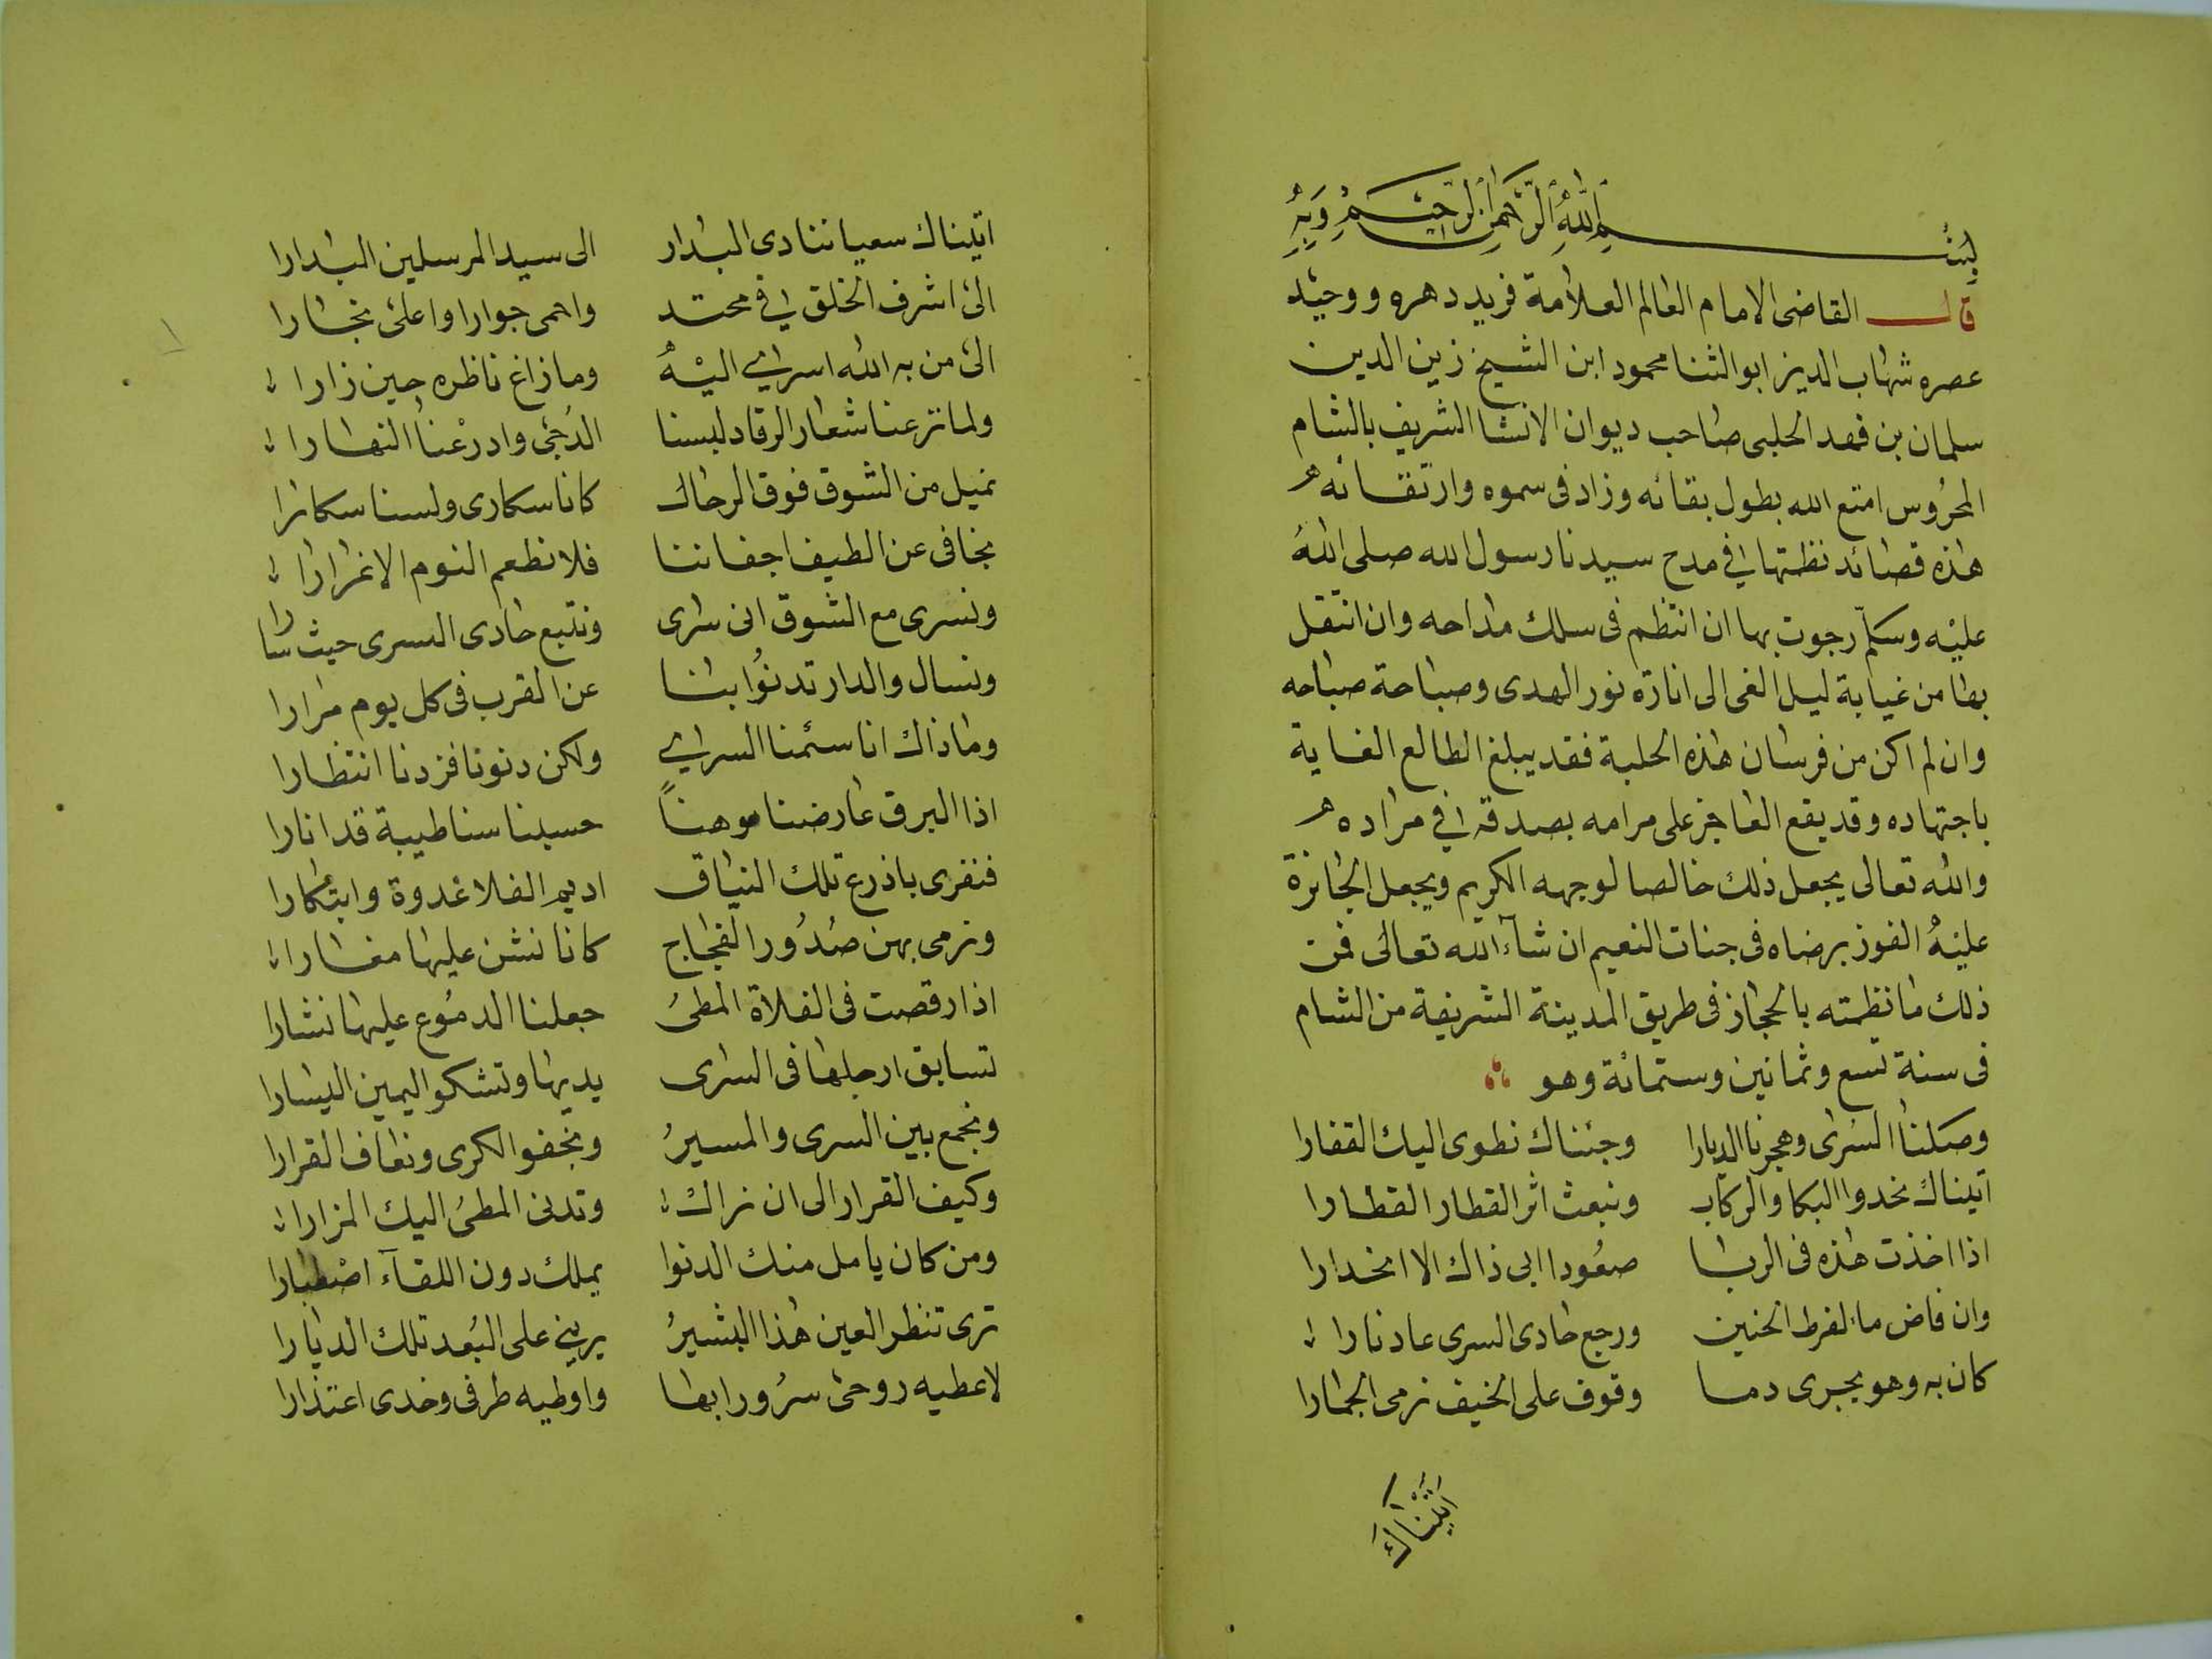 بسم الله الرحمن الرحيم وبه
قال القاضى الامام العالم العلامة فريد دهره ووحيد
عصره شهاب الدين ابو الثنا محمود ابن الشيخ زين الدين
سلمان بن فهد الحلبى صاحب ديوان الانشا الشريف بالشام
المحروس امتع الله بطول بقائه وزاد فى سموه وارتقائه
هذه قصائد نظمتها في مدح سيدنا رسول الله صلى الله
عليه وسلم رجوت بها ان انتظم فى سلك مداحه وان انتقل
بها من غيابة ليل الغى الى انارة نور الهدى وصباحة صباحه
وان لم اكن من فرسان هذه الحلبة فقد يبلغ الطالع الغاية
باجتهاده وقد يقع العاجز على مرامه بصدقه في مراده
والله تعالى يجعل ذلك خالصا لوجهه الكريم ويجعل الجائزة
عليه الفوز برضاه فى جنات النعيم ان شآء الله تعالى فمن
ذلك ما نظمته بالحجاز فى طريق المدينة الشريفة من الشام
فى سنة تسع وثمانين وستمائة وهو
وصلنا السرى وهجرنا الديارا وجئناك نطوى اليك القفارا
اتيناك نحدوا البكا والركاب ونبعث اثر القطار القطارا
اذا اخذت هذه فى الربا صعودا ابى ذاك الا انحدارا
وان فاض ماء لفرط الحنين ورجع حادى السرى عاد نارا
كان به وهو يجرى دما وقوف على الخيف نرمى الجمارا
اتيناك
اتيناك سعيا ننادى البدار الى سيد المرسلين البدارا
الى اشرف الخلق في محتد واحمى جوارا واعلى نجارا
الى من به الله اسرى اليه وما زاغ ناظره حين زارا
ولما نزعنا شعار الرقاد لبسنا الدجى وادرعنا النهارا
نميل من الشوق فوق الرحال كانا سكارى ولسنا سكارا
نجافى عن الطيف اجفاننا فلا نطعم النوم الا غرارا
ونسرى مع الشوق انى سرى ونتبع حادى السرى حيث سارا
ونسال والدار تدنوا بنا عن القرب فى كل يوم مرارا
وما ذاك انا سئمنا السرى ولكن دنونا فزدنا انتظارا
اذا البرق عارضنا موهنا حسبنا سنا طيبة قد انارا
فنفرى باذرع تلك النياق اديم الفلا غدوة وابتكارا
ونرمى بهن صدور الفجاج كانا نشن عليها مغارا
اذا رقصت فى الفلاة المطى جعلنا الدموع عليها نثارا
تسابق ارجلها فى السرى يديها وتشكو اليمين اليسارا
ونجمع بين السرى والمسير ونجفو الكرى ونعاف القرارا
وكيف القرار الى ان نراك وتدنى المطى اليك المزارا
ومن كان يامل منك الدنوا يملك دون اللقآء اصطبارا
ترى تنظر العين هذا البشير يريني على البعد تلك الديارا
لاعطيه روحى سرورا بها واوطيه طرفى وخدى اعتذارا